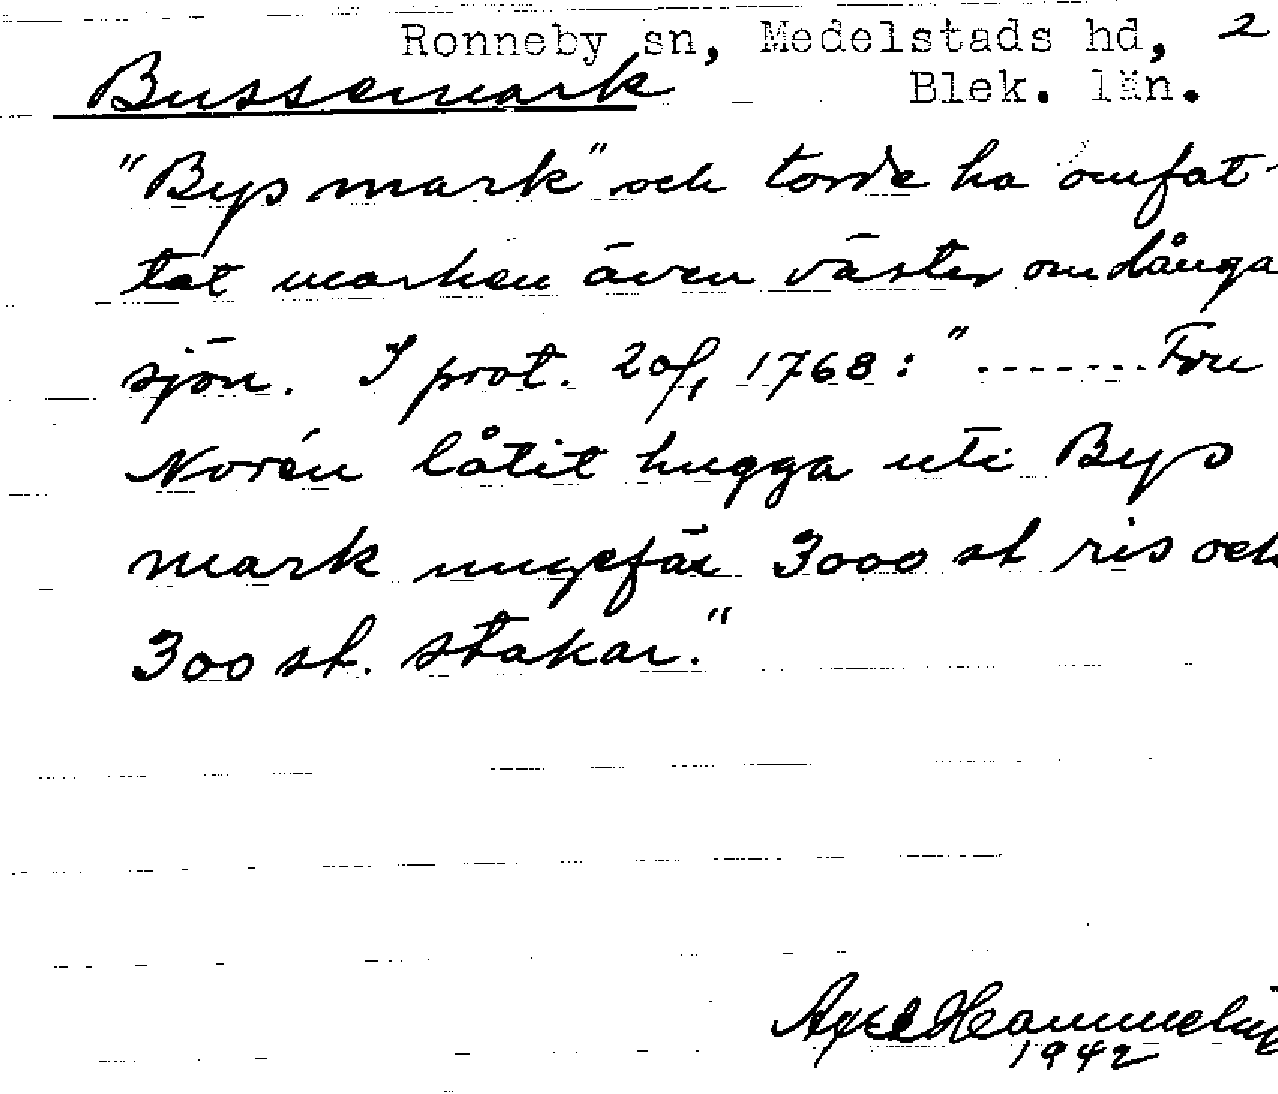 Ronneby sn, Medelstads hd, 2
Bussemark Blek. län.
"Bys mark" och torde ha omfat-
tat marken även väster om Långa
sjön. I prot. 20/1 1768: " ....... Fru
Norén låtit hugga uti Bys
mark ungefär 3000 st ris och
300 st. stakar."
Axel
1942